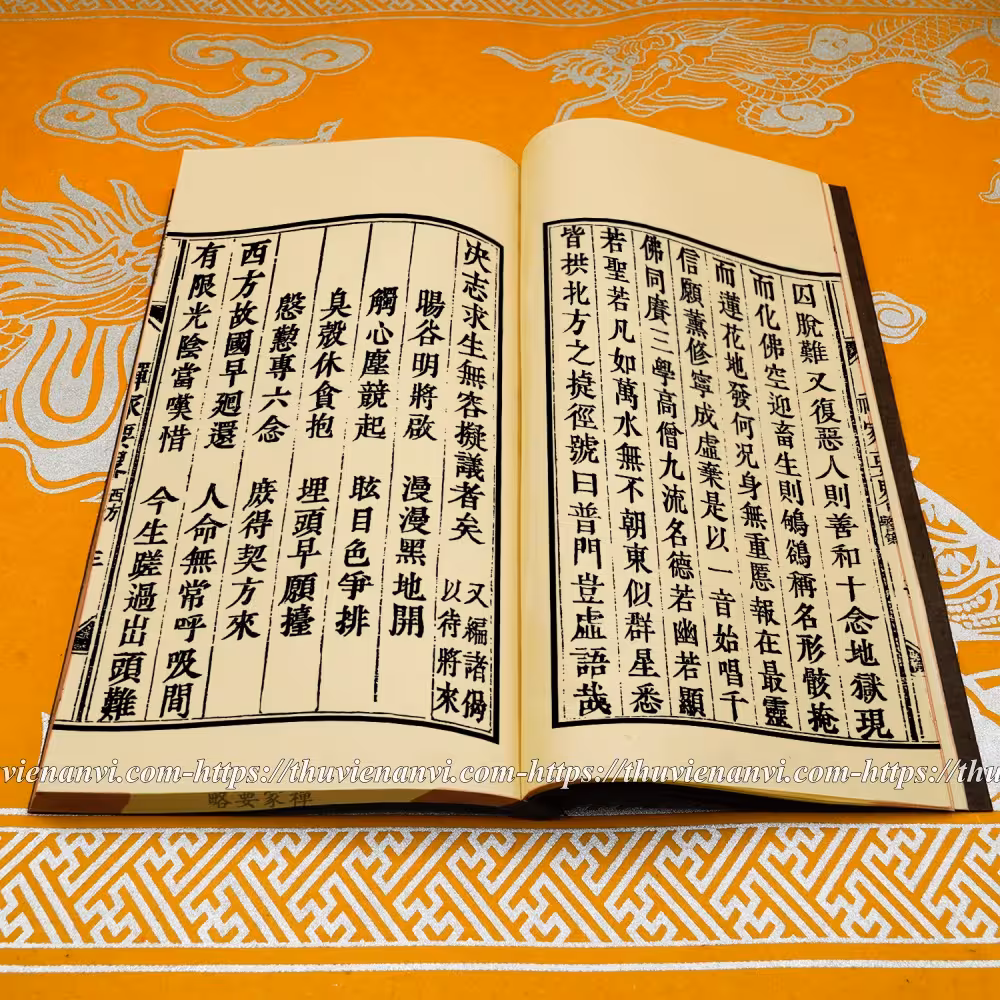 囚脫難又復惡人則善和十念地獄現
而化佛空迎畜生則鴝鵒稱名形骸掩
而蓮花地發何况身無重慝報在最靈
信願薰修寧成虛棄是以一音始唱千
佛同賡三學高僧九流名德若幽若顯
若聖若凡如萬水無不朝東似群星悉
皆拱北方之捷徑號曰普門豈虛語哉
决志求生無容擬議者矣 又編諸偈
以待將來
暘谷明將啟 漫漫黑地開
觸心塵競起 眩目色爭排
臭殼休貪抱 埋頭早願擡
慇懃專六念 庶得契方來
西方故國早廻還 人命無常呼吸間
有限光陰當嘆惜 今生蹉過出頭難
西方 三
略要家禪
vienanvi.com-https://thuvienanvi.com-https://thuvienanvi.com-https://thu